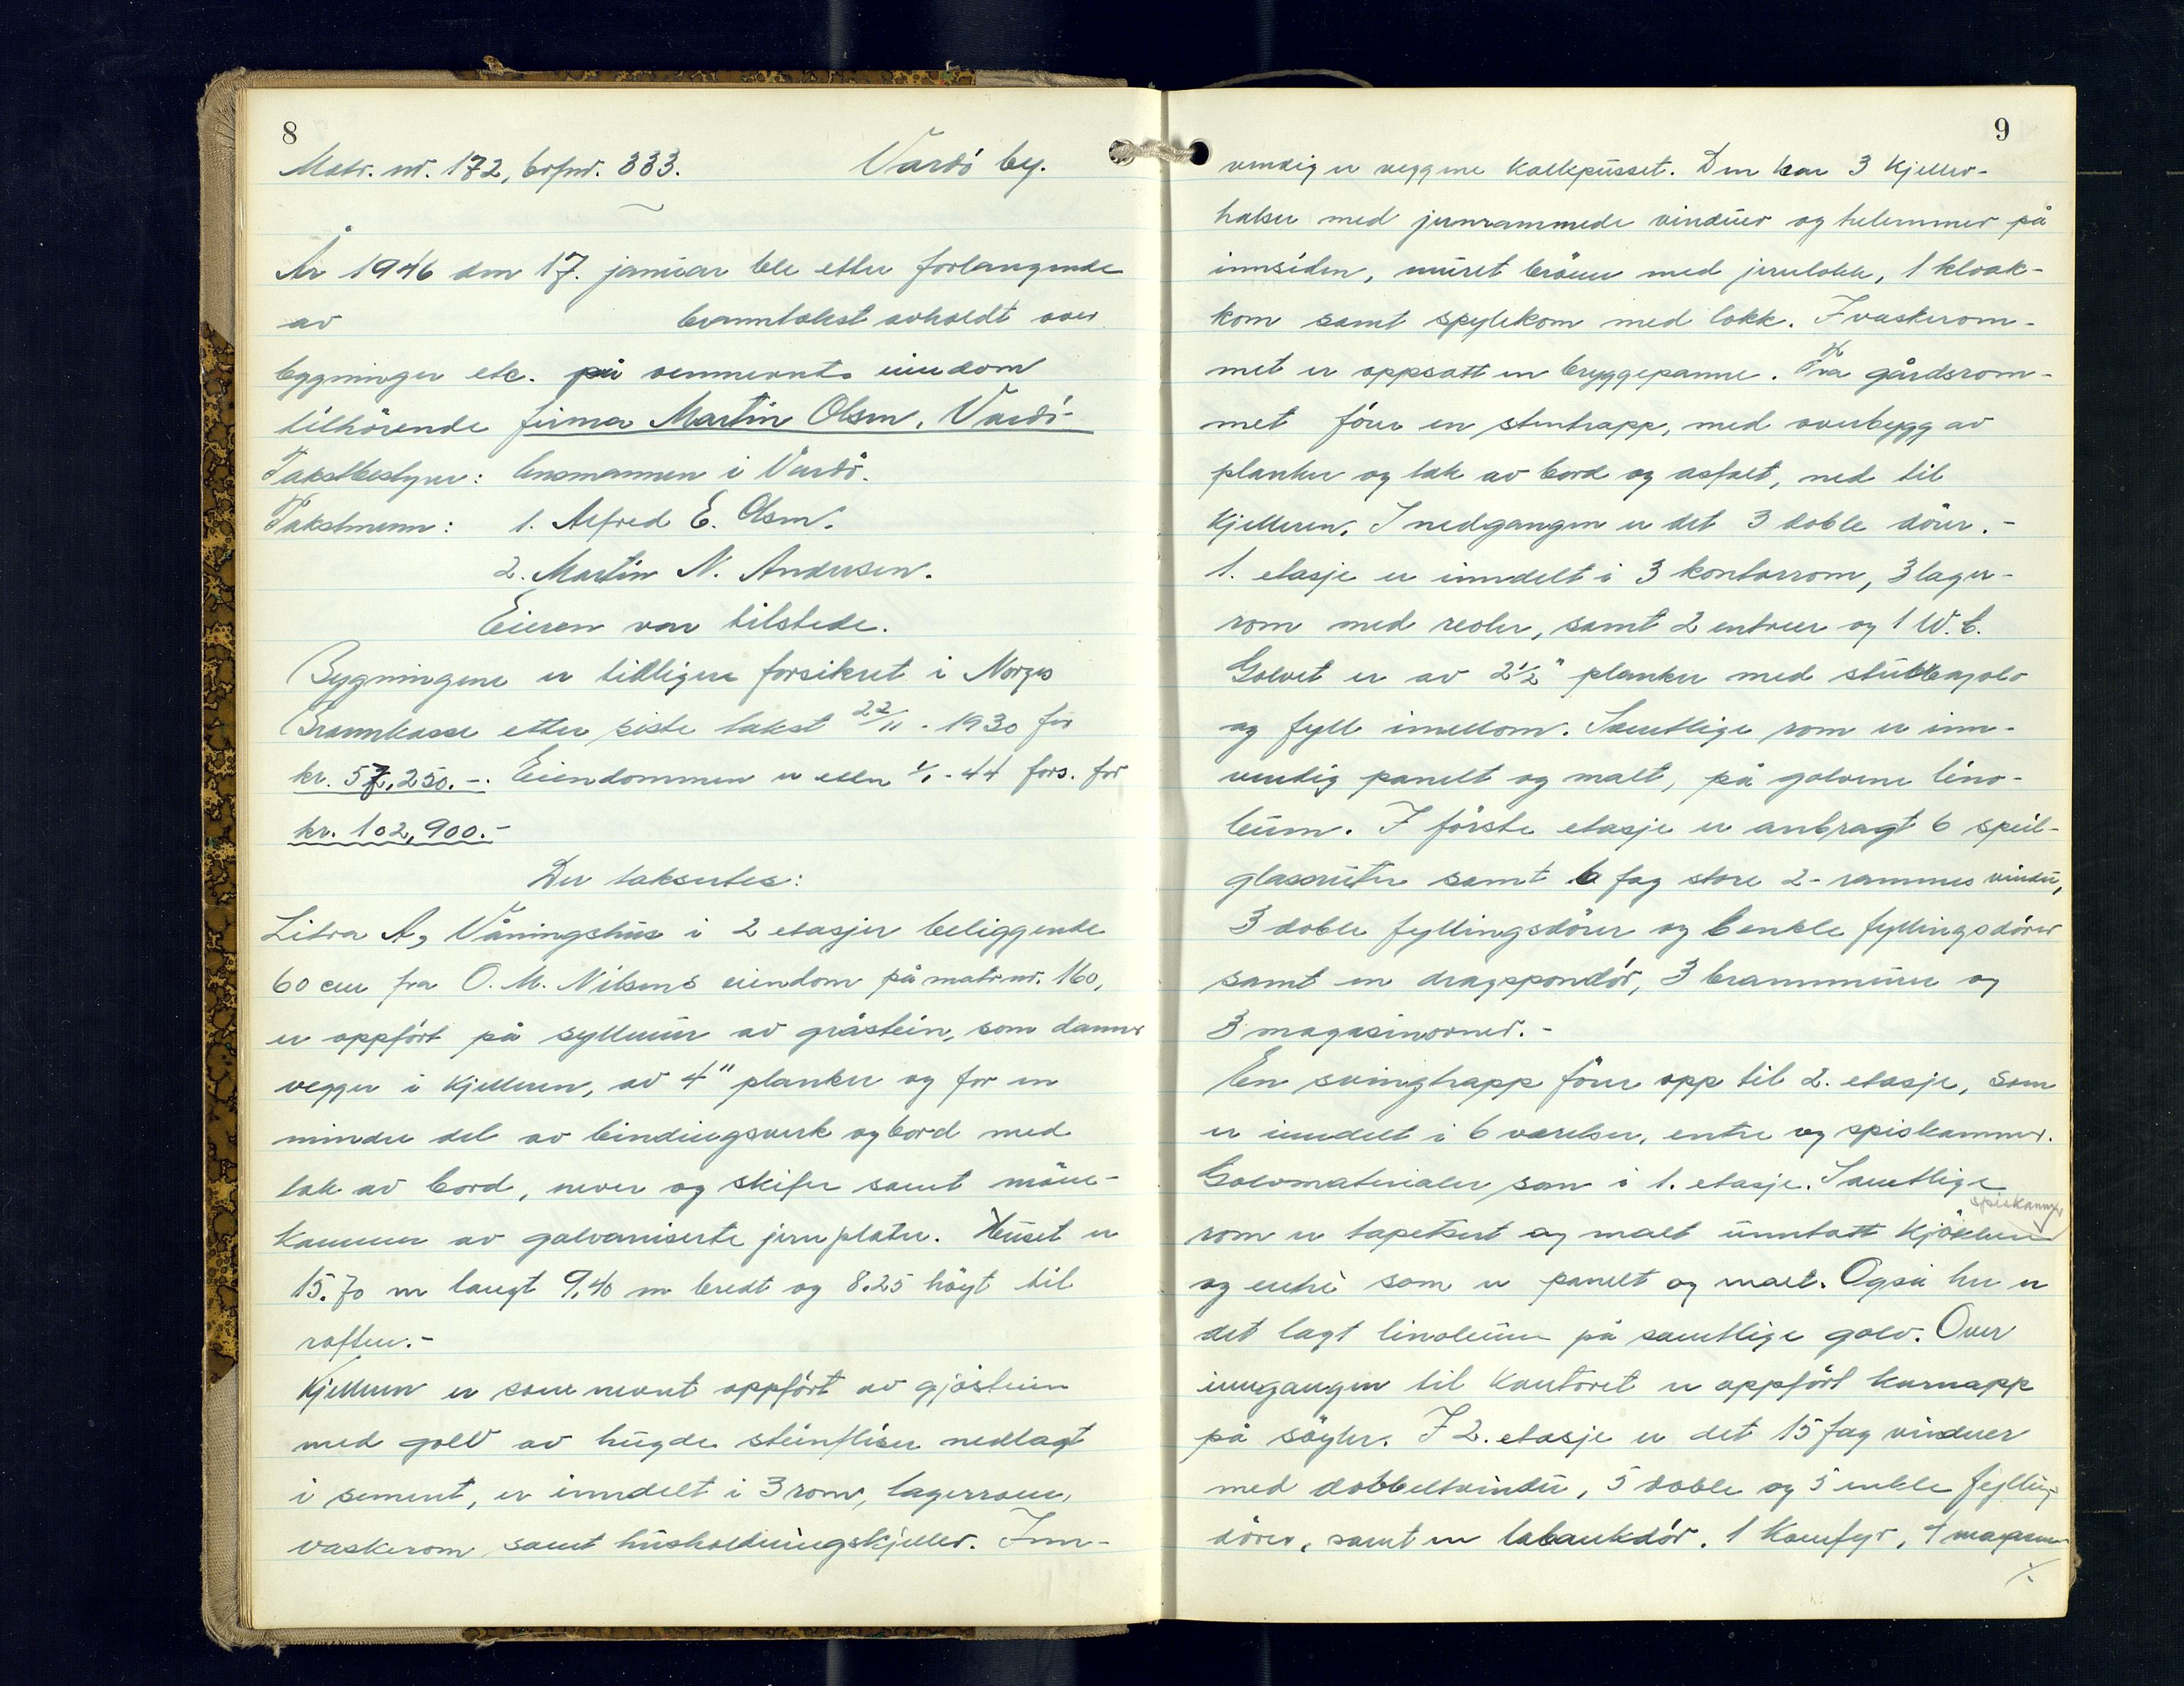 8
Matr. nr. 172, brfnr. 333. Vardö by.
År 1946 den 17. januar ble etter forlangende
av branntakst avholdt over
bygninger etc. på ovennevnte eiendom
tilhörende firma Martin Olsen, Vardö-
Takstbestyrer: lensmannen i Vardö.
Takstmenn: 1. Alfred E. Olsen.
2. Martin N. Andersen.
Eieren var tilstede.
Bygningene er tidligere forsikret i Norges
Brannkasse etter siste takst 22/11 - 1930 for
kr. 57,250.-. Eiendommen er etter 1/1-44 fors. for
kr. 102,900.-
Der takseres:
Litra A, Våningshus i 2 etasjer beliggende
60 cm fra O. M. Nilsens eiendom på matr.nr. 160,
er oppfört på syllmur av gråstein, som danner
vegger i kjelleren, av 4" planker og for en
mindre del av bindingsverk og bord med
tak av bord, never og skifer samt möne-
kammer av galvaniserte jernplater. Huset er
15.70 m langt 9,40 m bredt og 8.25 höyt til
raften.-
Kjelleren er som nevnt oppfört av gråstein
med golv av hugde steinfliser nedlagt
i sement, er inndelt i 3 rom, lagerrom,
vaskerom samt husholdningskjeller. Inn-
9
vendig er veggene kalkpusset. Den har 3 kjeller-
halser med jernrammede vinduer og trelemmer på
innsiden, muret brönn med jernlokk, 1 kloak-
kom samt spylekom med lokk. I vaskerom-
met er oppsatt en bryggepanne. Fra gårdsrom-
met förer en stentrapp, med overbygg av
planker og tak av bord og asfalt, ned til
kjelleren. I nedgangen er det 3 doble dörer.-
1. etasje er inndelt i 3 kontorrom, 3 lager-
rom med reoler, samt 2 entreer og 1 W.C.
Golvet er av 2 1/2" planker med stubbegolv
og fyll imellom. Samtlige rom er inn-
vendig panelt og malt, på golvene lino-
leum. I förste etasje er anbragt 6 speil-
glassruter samt 6 fag store 2-rammes vindu,
3 doble fyllingsdörer og 6 enkle fyllingsdörer
samt en dragspondör, 3 brannmurer og
3 magasinovner.-
En svingtrapp förer opp til 2. etasje, som
er inndelt i 6 værelser, entre og spiskammer.
Golvmaterialer som i 1. etasje. Samtlige
spiskammer
rom er tapetsert og malt unntatt kjökken
og entré som er panelt og malt. Også her er
det lagt linoleum på samtlige golv. Over
inngangen til kontoret er oppfört karnapp
på söyler. I 2. etasje er det 15 fag vinduer
med dobbeltvindu, 5 doble og 5 enkle fylling-
dörer, samt en labankdör. 1 komfyr, 4 magasin-
./.